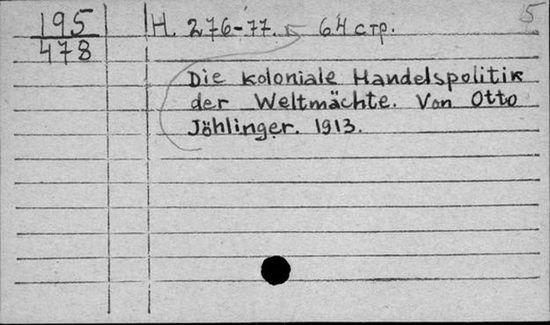 195
478
H. 276-77. 64 стр.
5
Die koloniale Handelspolitik
der Weltmächte. Von Otto
Jöhlinger. 1913.